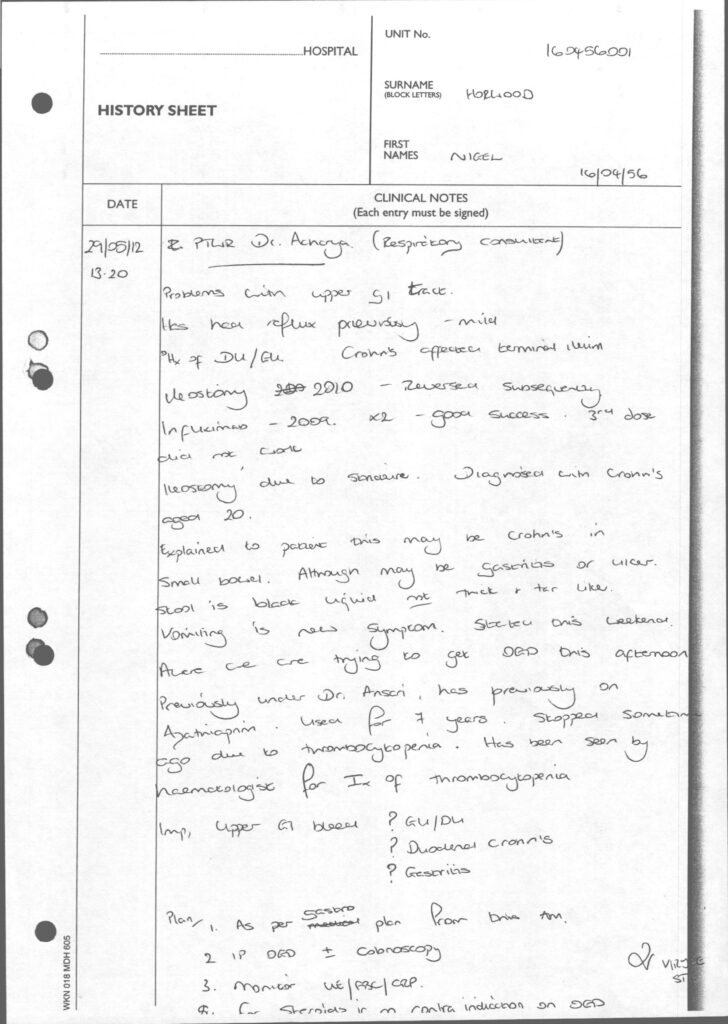 HOSPITAL
UNIT No.
160456001
SURNAME
(BLOCK LETTERS)
HORWOOD
HISTORY SHEET
FIRST
NAMES
NIGEL
16/04/56
DATE
CLINICAL NOTES
(Each entry must be signed)
29/05/12
PTWR Dr. Acharya. (Respiratory consultant)
13.20
Problems with upper GI tract.
Has had reflux previously - mild
PHx of DU/GU. Crohn's affected terminal ileum
Ileostomy 2010 - Reversed subsequently
- 2009. x2 - good success. 3rd dose
did not work
Ileostomy due to stricture. Diagnosed with Crohn's
aged 20.
Explained to patient this may be Crohn's in
small bowel. Although may be gastritis or ulcer.
Stool is black liquid not thick + tar like.
Vomiting is new symptom. Started this weekend.
Aware we are trying to get OGD this afternoon
Previously under Dr. Ansari, has previously on
. Used for 7 years. Stopped sometime
ago due to thrombocytopenia. Has been seen by
haematologist for Ix of thrombocytopenia
Imp, Upper GI bleed ? GU/DU
? Duodenal Crohn's
? Gastritis
Plan/ 1. As per gastro medical plan from this Am.
2 IP OGD ± Colonoscopy
3. Monitor UE/FBC/CRP.
4. For steroids if no contra indication on OGD
WKN 018 MDH 605